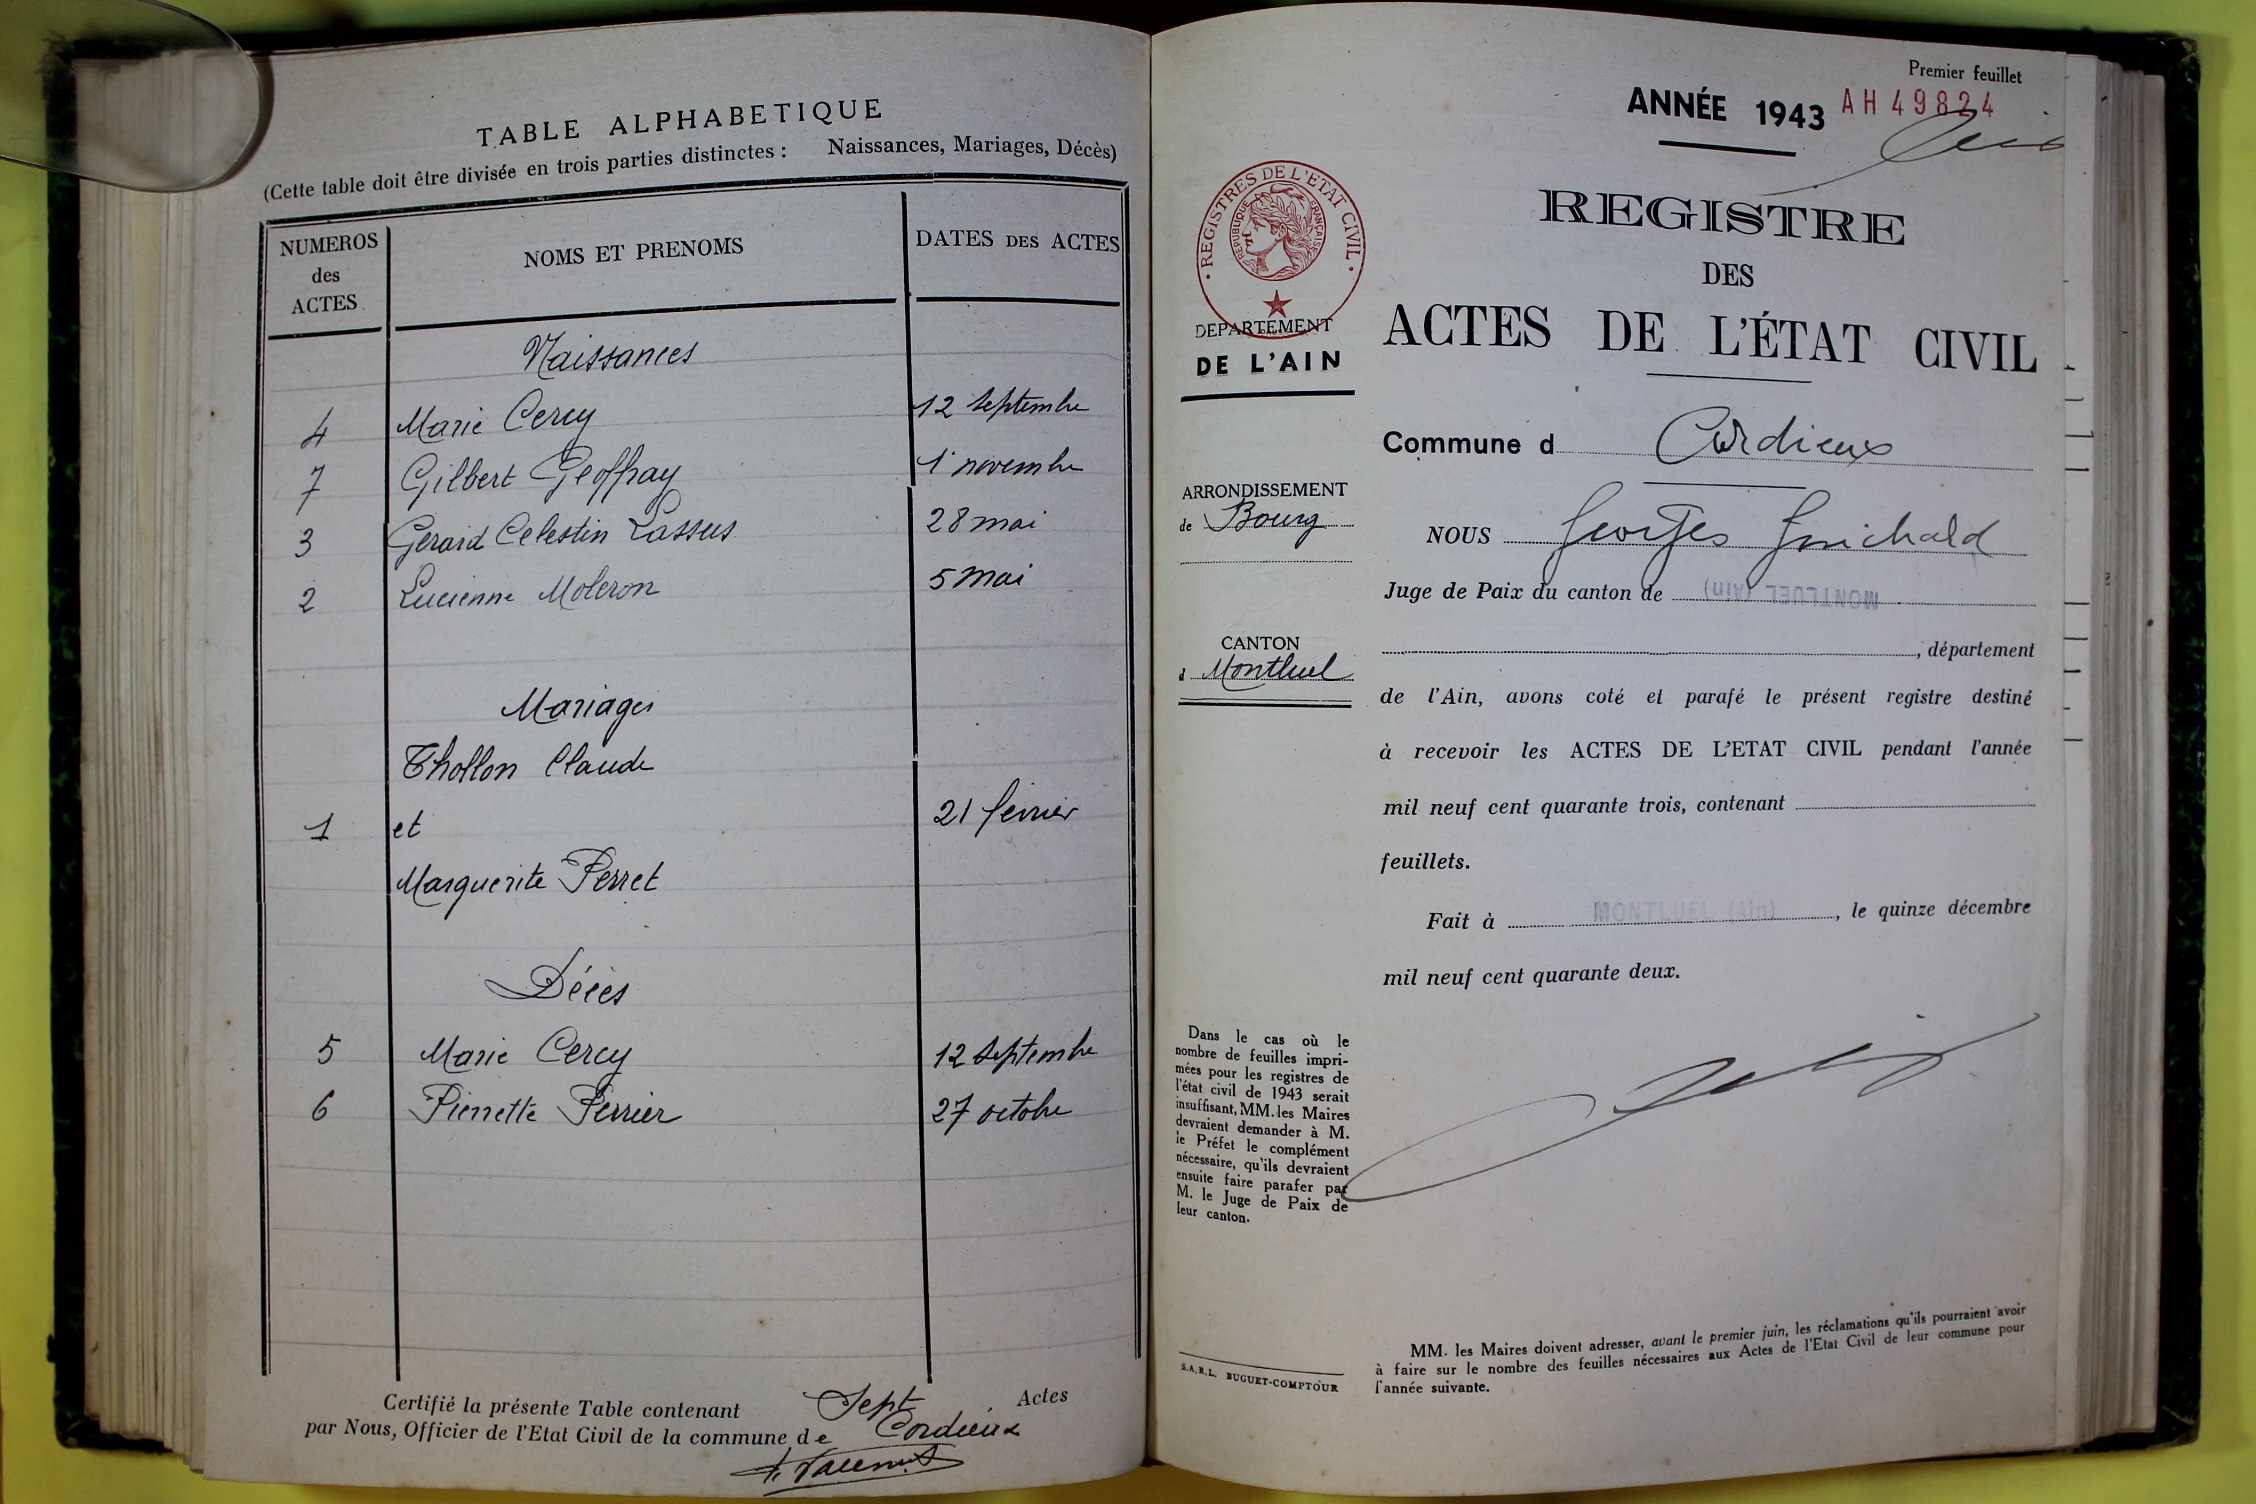 TABLE ALPHABETIQUE
(Cette table doit être divisée en trois parties distinctes : Naissances, Mariages, Décès)
NUMEROS des ACTES
NOMS ET PRENOMS
DATES DES ACTES
Naissances
4 Marie Cercy 12 septembre
7 Gilbert Geoffray 1 novembre
3 Gerard Celestin Lassus 28 mai
2 Lucienne Moleron 5 mai
Mariages
Thollon Claude
1 et 21 février
Marguerite Perret
Décès
5 Marie Cercy 12 septembre
6 Pierrette Perrier 27 octobre
Certifié la présente Table contenant Sept Actes
par Nous, Officier de l'Etat Civil de la commune de Cordieux
Premier feuillet
ANNÉE 1943 AH 49824
REGISTRES DE L'ETAT CIVIL
REPUBLIQUE FRANÇAISE
DEPARTEMENT
DE L'AIN
REGISTRE
DES
ACTES DE L'ÉTAT CIVIL
Commune d Cordieux
ARRONDISSEMENT
de Bourg
NOUS Georges
Juge de Paix du canton de MONTLUEL (Ain)
CANTON
d Montluel
, département
de l'Ain, avons coté et parafé le présent registre destiné
à recevoir les ACTES DE L'ETAT CIVIL pendant l'année
mil neuf cent quarante trois, contenant
feuillets.
Fait à MONTLUEL (Ain), le quinze décembre
mil neuf cent quarante deux.
Dans le cas où le
nombre de feuilles impri-
mées pour les registres de
l'état civil de 1943 serait
insuffisant, MM. les Maires
devraient demander à M.
le Préfet le complément
nécessaire, qu'ils devraient
ensuite faire parafer par
M. le Juge de Paix de
leur canton.
S.A.R.L. BUGUET-COMPTOUR
MM. les Maires doivent adresser, avant le premier juin, les réclamations qu'ils pourraient avoir
à faire sur le nombre des feuilles nécessaires aux Actes de l'Etat Civil de leur commune pour
l'année suivante.